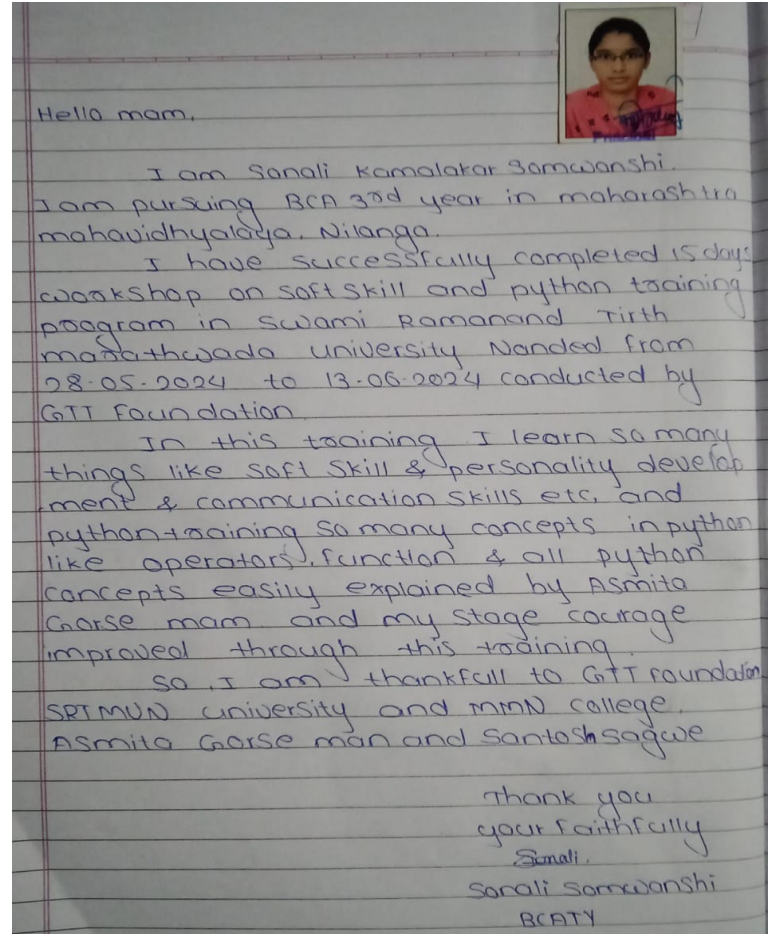 Hello mam,
I am Sonali Kamalakar Somwanshi.
I am pursuing BCA 3rd year in maharashtra
mahavidhyalaya. Nilanga.
I have successfully completed 15 days
workshop on soft skill and python training
program in Swami Ramanand Tirth
marathwada university Nanded from
28.05.2024 to 13.06.2024 conducted by
GTT Foundation
In this training I learn so many
things like soft skill & personality develop
ment & communication skills etc, and
python training so many concepts in python
like operators, function & all python
concepts easily explained by Asmita
Gorse mam and my stage courage
improved through this training.
So, I am thankfull to GTT Foundation
SRTMUN university and MMN college.
Asmita Gorse man and Santosh sagwe
Thank you
your faithfully
Sonali.
Sonali Somwanshi
BCATY
Principal